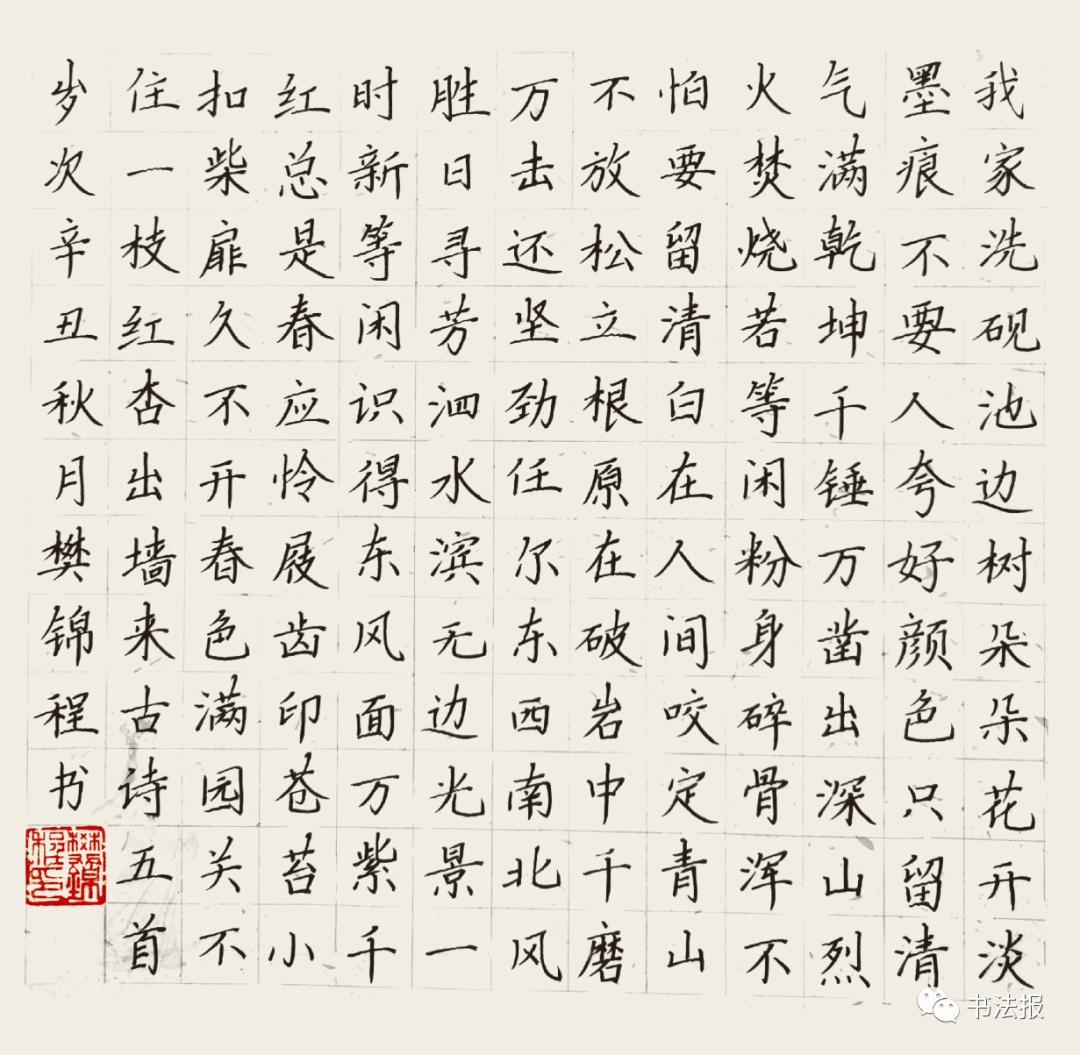 我家洗砚池边树朵朵花开淡
墨痕不要人夸好颜色只留清
气满乾坤千锤万凿出深山烈
火焚烧若等闲粉身碎骨浑不
怕要留清白在人间咬定青山
不放松立根原在破岩中千磨
万击还坚劲任尔东西南北风
胜日寻芳泗水滨无边光景一
时新等闲识得东风面万紫千
红总是春应怜屐齿印苍苔小
扣柴扉久不开春色满园关不
住一枝红杏出墙来古诗五首
岁次辛丑秋月樊锦程书
樊錦程印
书法报